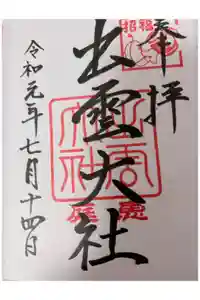 奉拝
招福
出雲大社
令和元年七月十四日